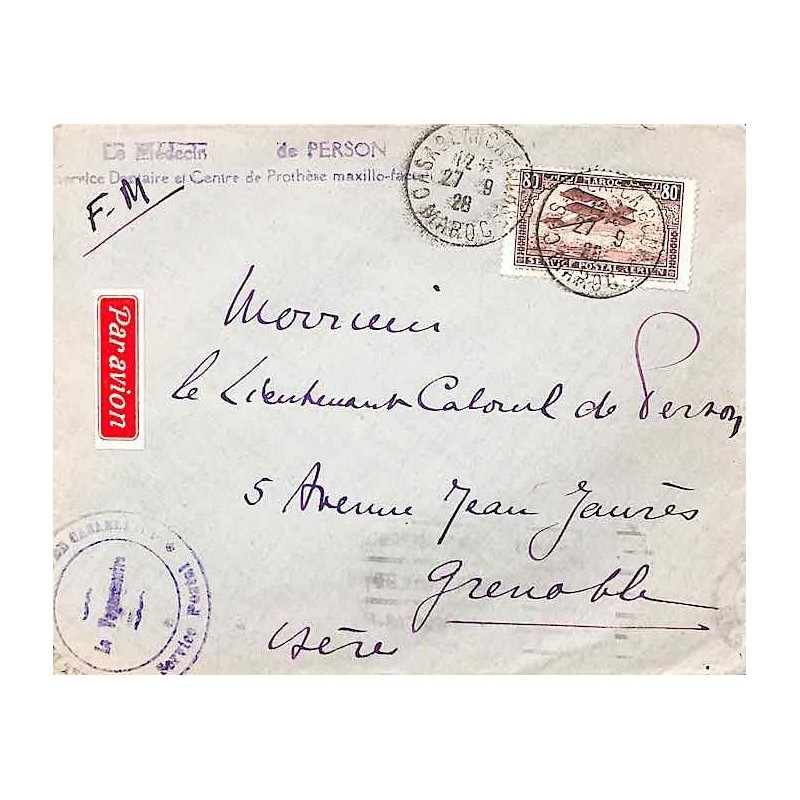 Le Médecin de PERSON
Service Dentaire et Centre de Prothèse maxillo-faciale
F-M
CASABLANCA
27 9
28
MAROC
81 MAROC 80
SERVICE POSTAL AERIEN
27 9
MAROC
Par avion
Monsieur
le Lieutenant Colonel de Person
5 Avenue Jean Jaurès
Grenoble
Isère
DE CASABLANCA
Le Vaguemestre
Service